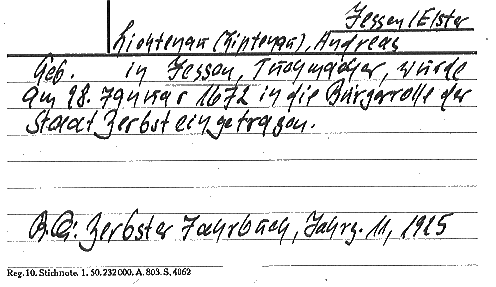 Jessen/Elster
Lichtenau (Liptenau), Andreas
Geb. in Jessen, Tuchmacher, wurde
am 28. Januar 1672 in die Bürgerrolle der
Stadt Zerbst eingetragen.
B.Qu: Zerbster Jahrbuch, Jahrg. 11, 1925
Reg. 10. Stichnote. 1. 50. 232000. A. 803. S. 4062